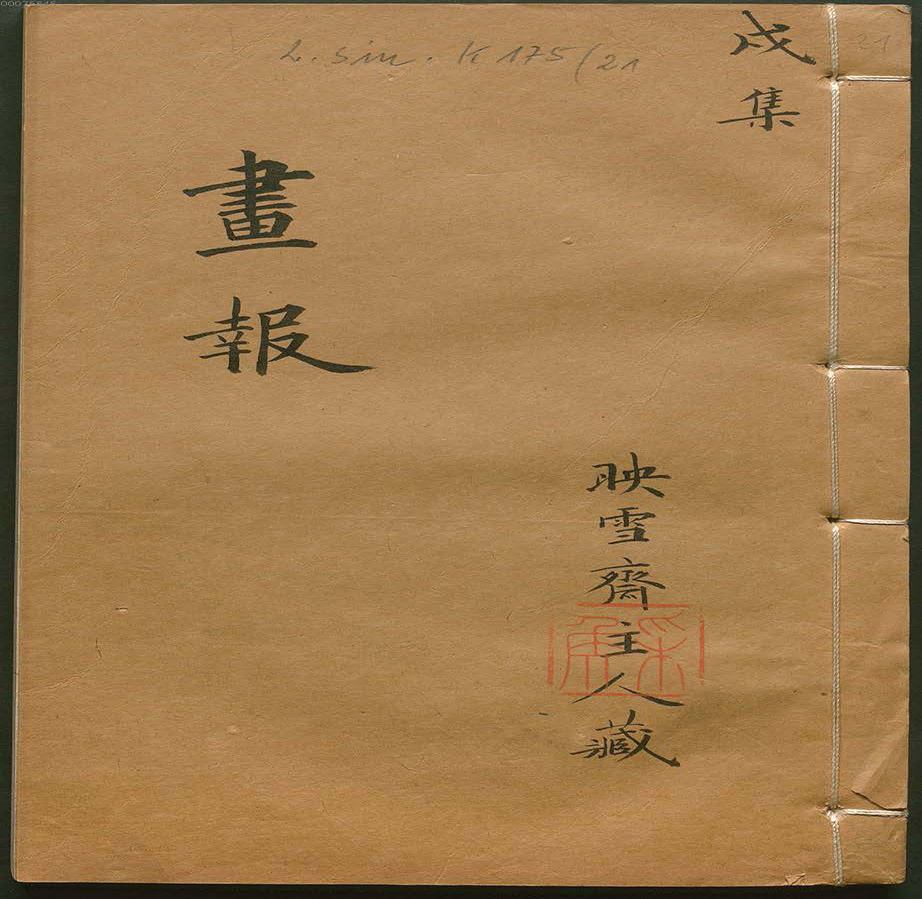 L. sin. K 175/21
21
戌集
畫報
映雪齋主人藏